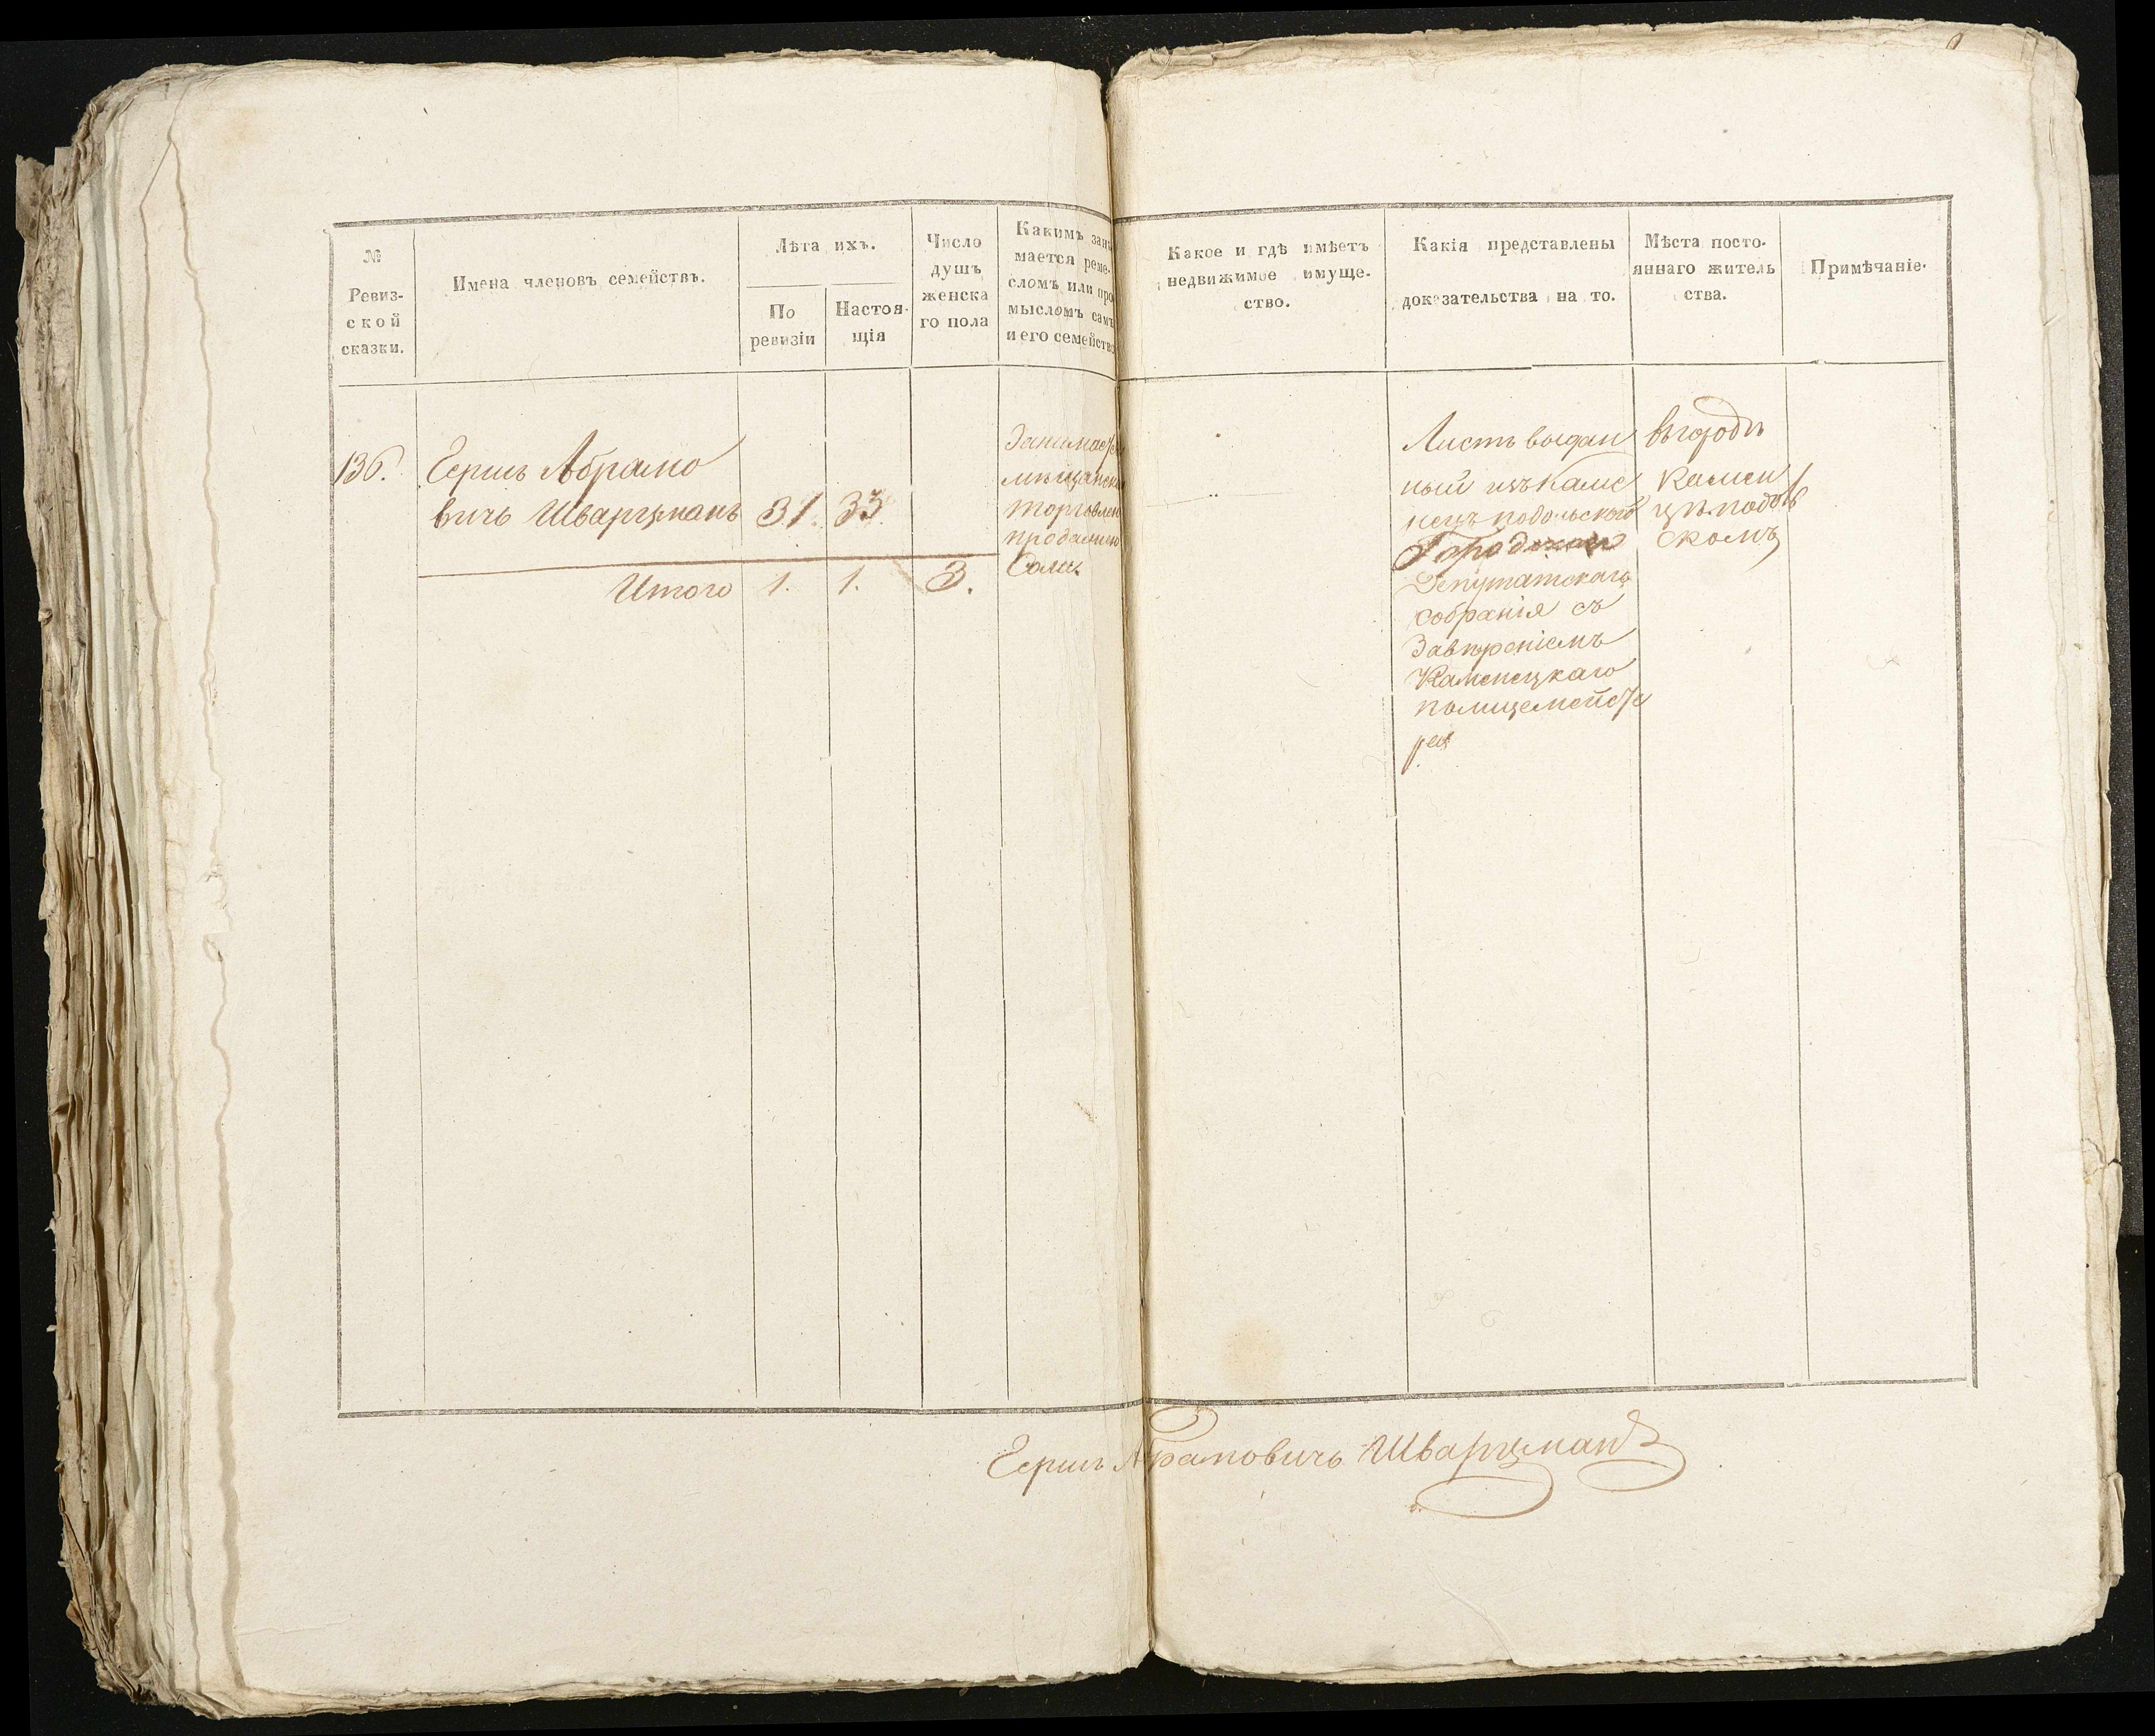 №
Ревиз-
ской
сказки.
Имена членовъ семействъ.
Лѣта ихъ.
По
ревизіи
Настоя-
щія
Число
душъ
женска
го пола
Какимъ зани
мается реме-
сломъ или про
мысломъ самъ
и его семейство
Какое и гдѣ имѣетъ
недвижимое имуще-
ство.
Какія представлены
доказательства на то.
Мѣста посто-
яннаго житель
ства.
Примѣчаніе.
136.
Гершъ Абрамо
вичь Шварцманъ
31.
33.
Занимается
мѣщанск
торговлею
продажею
Соли
Листъ выдан
ный изъ Каме
нецъ подольского
Депутатскаго
собранія съ
Завѣреніемъ
Каменецкаго
полицемейст
ра
въ городѣ
Камен
цѣ подоль
скомъ
Итого
1.
1.
3.
Гершъ Абрамовичь Шварцманъ